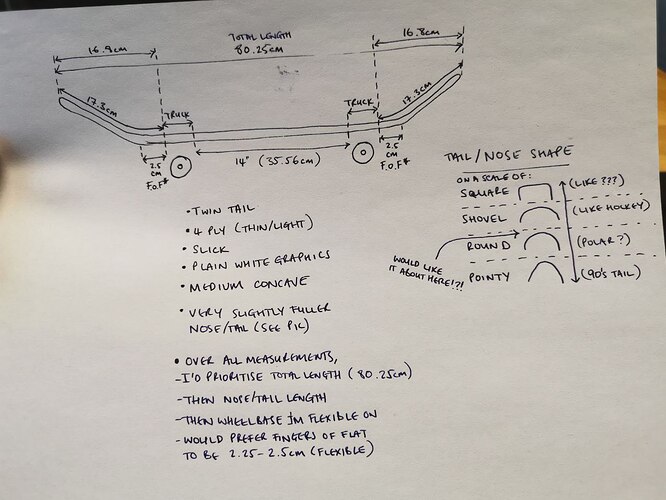 TOTAL LENGTH
80.25cm
16.9cm
16.8cm
17.3cm
TRUCK
TRUCK
17.3cm
2.5
cm
F.O.F*
14" (35.56cm)
2.5
cm
F.O.F*
TAIL/NOSE SHAPE
ON A SCALE OF:
SQUARE (LIKE ???)
SHOVEL (LIKE HOCKEY)
ROUND (POLAR?)
POINTY (90'S TAIL)
WOULD LIKE
IT ABOUT HERE!?!
• TWIN TAIL
• 4 PLY (THIN/LIGHT)
• SLICK
• PLAIN WHITE GRAPHICS
• MEDIUM CONCAVE
• VERY SLIGHTLY FULLER
NOSE/TAIL (SEE PIC)
• OVER ALL MEASUREMENTS,
- I'D PRIORITISE TOTAL LENGTH (80.25cm)
- THEN NOSE/TAIL LENGTH
- THEN WHEELBASE IM FLEXIBLE ON
- WOULD PREFER FINGERS OF FLAT
TO BE 2.25-2.5cm (FLEXIBLE)